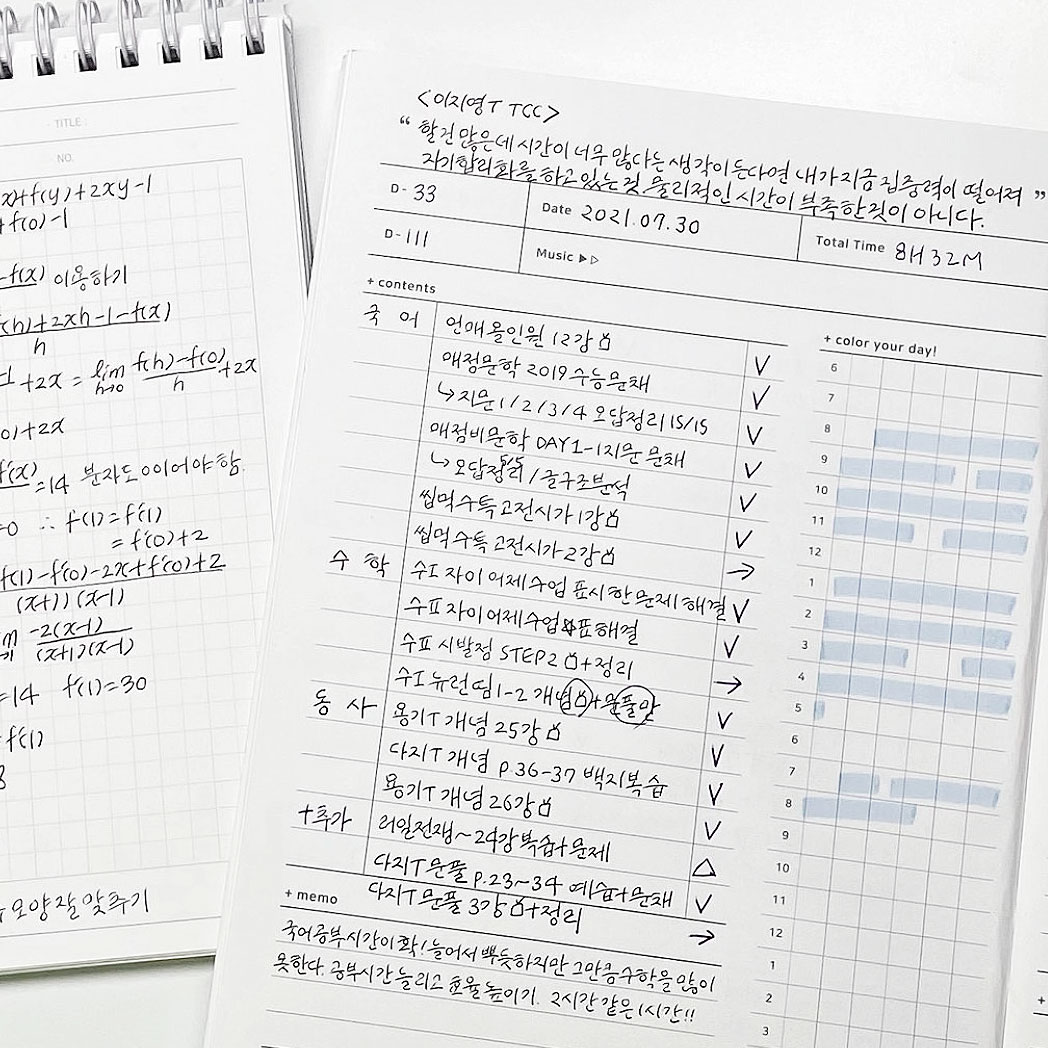 - TITLE :
NO.
x)+f(y)+2xy-1
+f(0)-1
-f(x) 이용하기
f(h)+2xh-1-f(x)
h
-1 +2x = lim h→0 f(h)-f(0) / h +2x
0)+2x
f'(x) =14 분자도 0이어야 함.
=0 ∴ f(1)=f'(1)
= f'(0)+2
f(1)-f'(0)-2x+f'(0)+2
(x+1)(x-1)
-2(x-1)
(x+1)(x-1)
=14 f(1)=30
f'(1)
8
모양 잘 맞추기
<이지영T TCC>
“ 할건 많은데 시간이 너무 않다는 생각이 든다면 내가 지금 집중력이 떨어져
자기합리화를 하고 있는 것. 물리적인 시간이 부족한 것이 아니다. ”
D- 33
Date 2021.07.30
Total Time 8H 32M
D- 111
Music ▶▷
+ contents
국어 언매올인원 12강
애정문학 2019 수능 문채 V
↳지문 1/2/3/4 오답정리 15/15 V
애정비문학 DAY1-1지문 문채 V
↳오답정리 / 글구조분석 V
씹먹 수특 고전시가 1강 V
씹먹 수특 고전시가 2강 V
수학 수I 자이 어제수업 표시한 문제 해결 →
수II 자이 어제수업 표 해결 V
수II 시발점 STEP2 +정리 V
수I 뉴런 띰1-2 개념+문풀만 →
동사 용기T 개념 25강 V
다지T 개념 p.36-37 백지복습 V
용기T 개념 26강 V
+추가 러일전쟁~24강 복습+문제 V
다지T 문풀 p.23~34 예습+문채 △
다지T 문풀 3강 +정리 V
→
+ memo
국어공부시간이 확! 늘어서 뿌듯하지만 그만큼 수학을 많이
못한다. 공부시간 늘리고 효율 높이기. 2시간 같은 1시간!!
+ color your day!
6
7
8
9
10
11
12
1
2
3
4
5
6
7
8
9
10
11
12
1
2
3
+
+